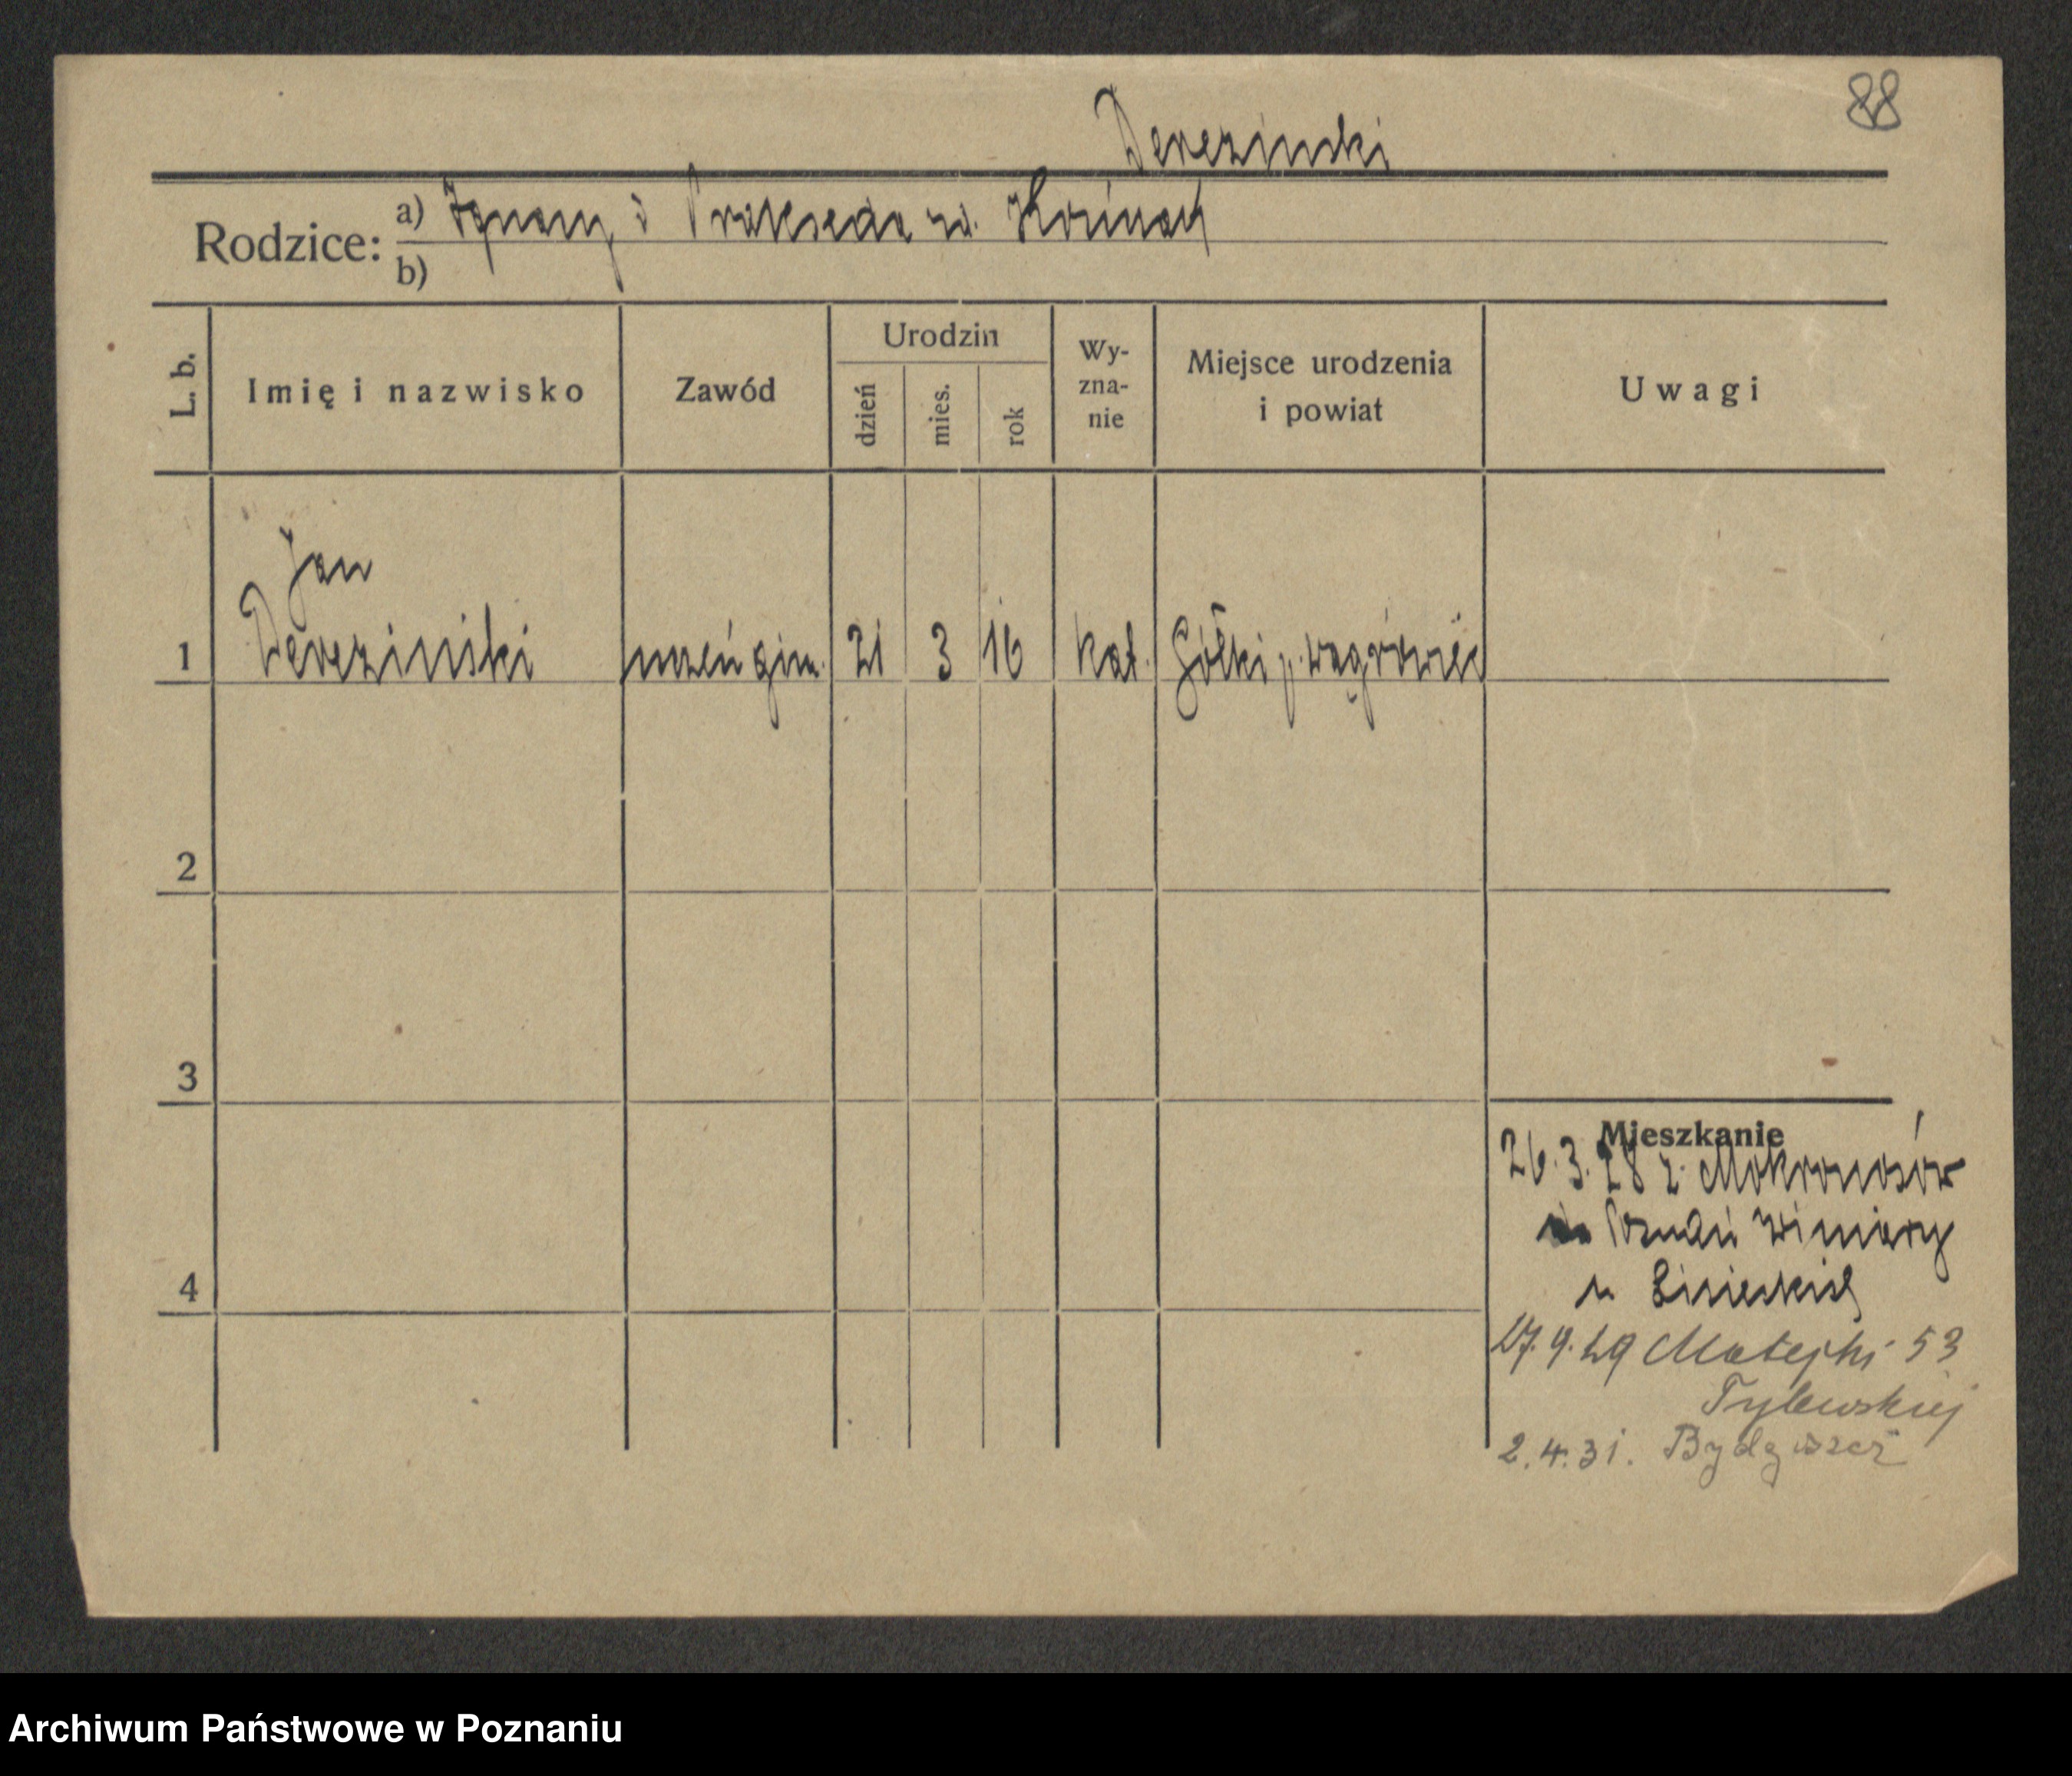 88
Derezinski
Rodzice: a) Ignacy i Prakseda zd.
b)
L. b.
Imię i nazwisko
Zawód
Urodzin
dzień
mies.
rok
Wy-
zna-
nie
Miejsce urodzenia
i powiat
Uwagi
Jan
1 Derezinski uczeń gim. 21 3 16 kat. Gółki p. Wągrówiec
2
3
4
Mieszkanie
26.3.28 z Mokronosów
Poznań Winiary
u
27.9.29 Matejki 53
Tylewskiej
2.4.31. Bydgoszcz
Archiwum Państwowe w Poznaniu